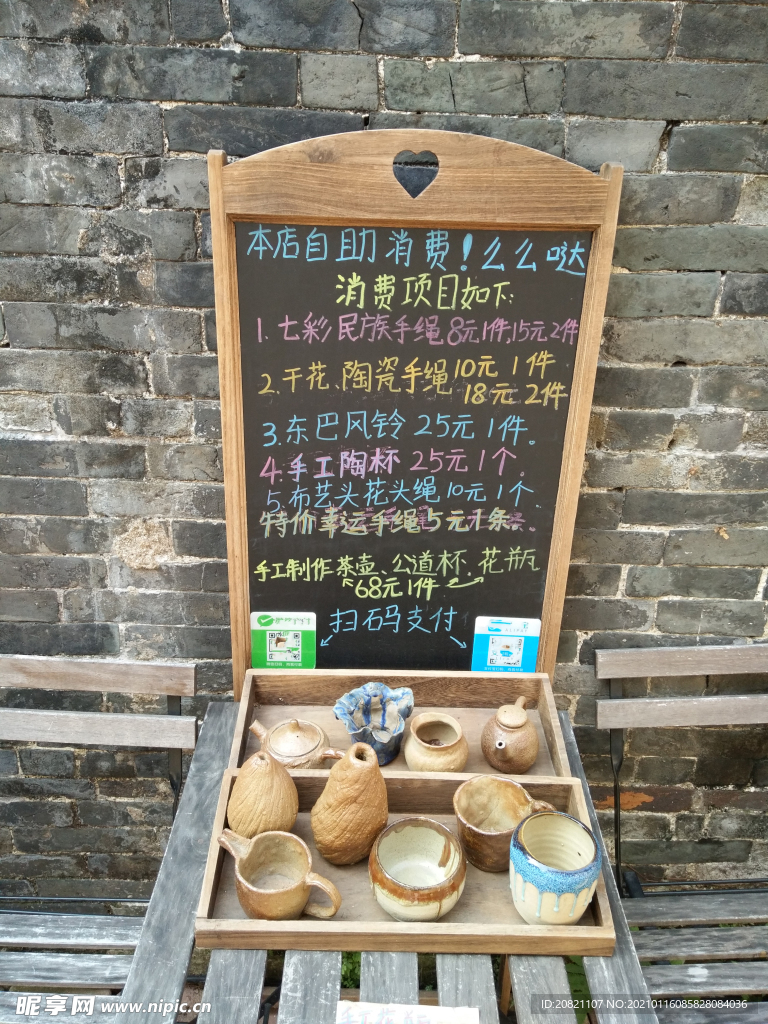 本店自助消费!么么哒
消费项目如下:
1.七彩民族手绳8元1件,15元2件
2.干花、陶瓷手绳10元1件
18元2件
3.东巴风铃25元1件。
4.手工陶杯25元1个。
5.布艺头花头绳10元1个。
特价幸运手绳5元1条。
手工制作茶壶、公道杯、花瓶
68元1件
扫码支付
昵享网 www.nipic.cn
ID:20821107 NO:20210116085828084036